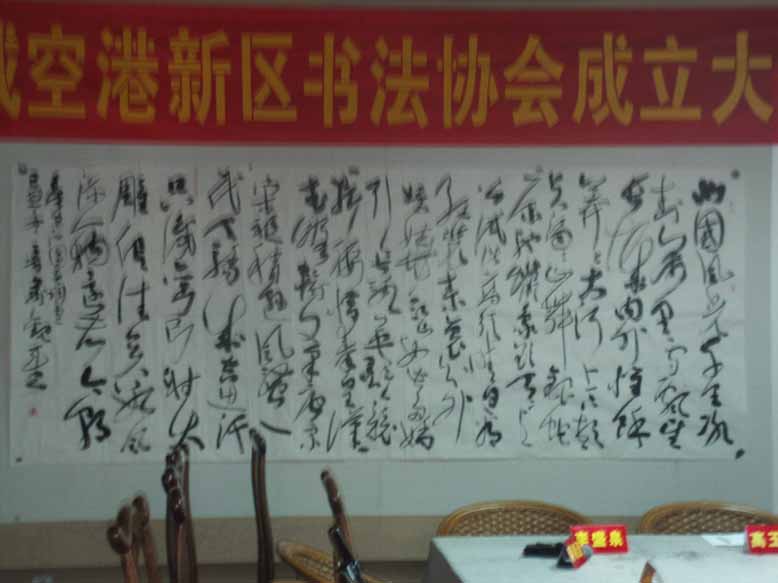 空港新区书法协会成立大
北國風光千里冰
封萬里雪飄望
长城内外惟馀
莽莽大河上下頓
失滔滔山舞銀蛇
原驰蜡象欲与天
公试比高须晴日看
红装素裹分外
妖娆江山如此多娇
引无数英雄竞
折腰惜秦皇漢
武略输文采唐宗
宋祖稍逊风骚一
代天骄成吉思汗
只识弯弓射大
雕俱往矣数风
流人物还看今朝